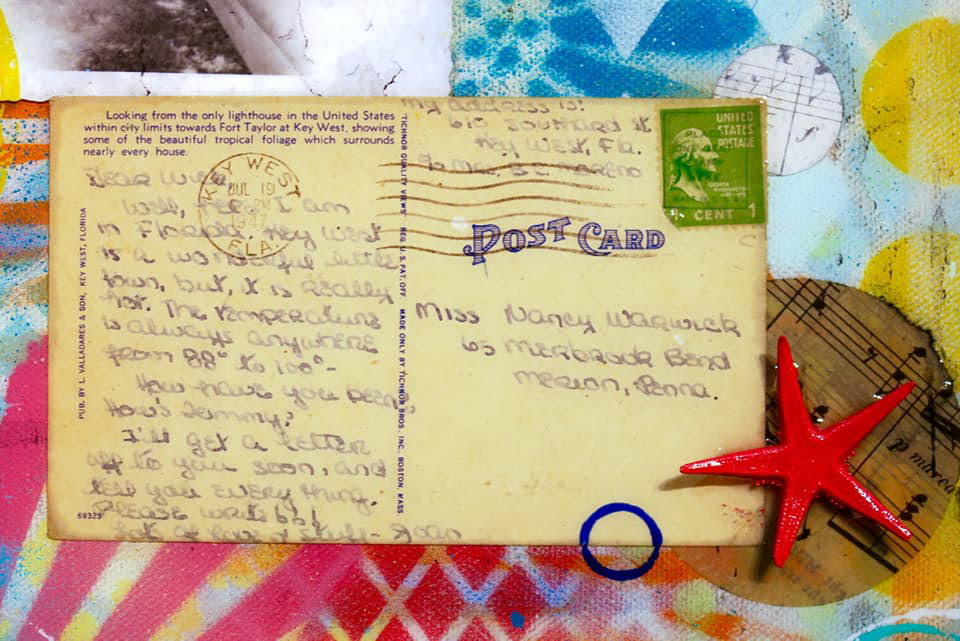 Looking from the only lighthouse in the United States
within city limits towards Fort Taylor at Key West, showing
some of the beautiful tropical foliage which surrounds
nearly every house.
Dear
Well, Here I am
in Florida. Key West
is a wonderful little
town, but, it is Really
hot. The temperature
is always anywhere
from 88° to 100°-
How have you been?
How's Jemmy?
I'll get a letter
off to you soon, and
tell you EVERY thing.
PLEASE write
Lots of love & stuff- Joan
69323
PUB. BY L. VALLADARES & SON, KEY WEST, FLORIDA
TICHNOR QUALITY VIEWS REG. U. S. PAT. OFF. MADE ONLY BY TICHNOR BROS., INC., BOSTON, MASS.
KEY WEST
JUL 19
PM
FLA.
My address is:
615 Southard St
Key West, Fla.
% Mrs. B.C. Moreno
UNITED
STATES
POSTAGE
GEORGE
WASHINGTON
CENT 1
POST CARD
Miss Nancy Warwick
65 Merbrook Bend
Merion, Penna.
f
p